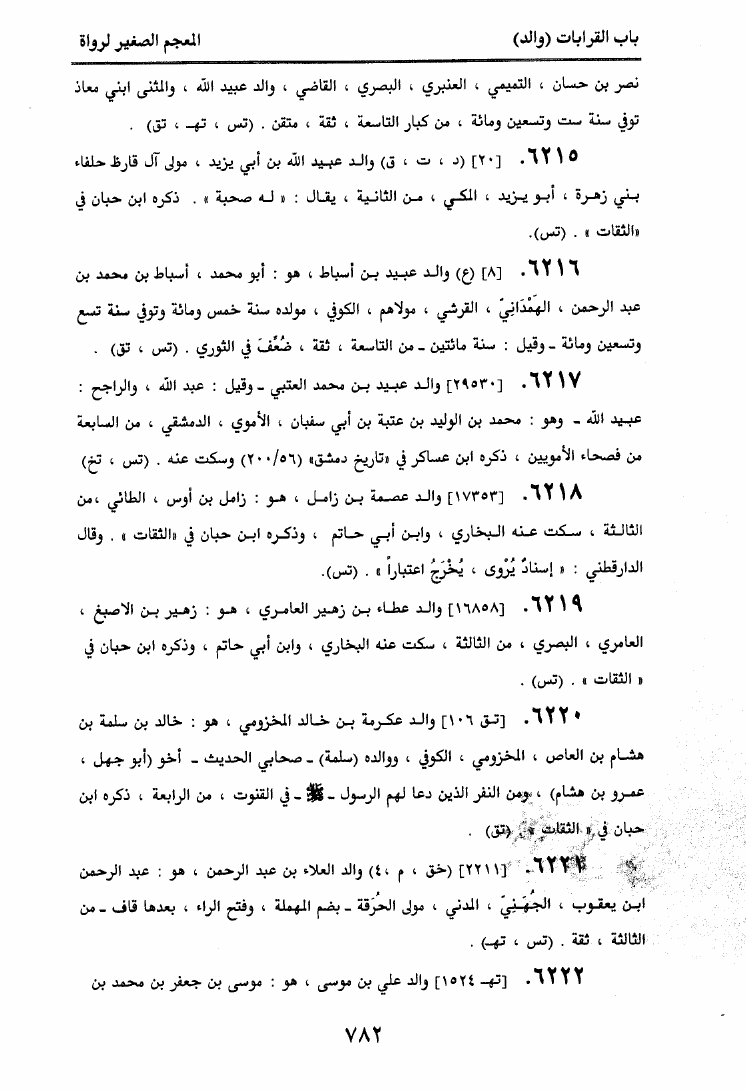 باب القرابات (والد)
المعجم الصغير لرواة
نصر بن حسان ، التميمي ، العنبري ، البصري ، القاضي ، والد عبيد الله ، والمثنى ابني معاذ
توفي سنة ست وتسعين ومائة ، من كبار التاسعة ، ثقة ، متقن . (تس ، تهـ ، تق) .
٦٢١٥. [٢٠] (د ، ت ، ق) والد عبيد الله بن أبي يزيد ، مولى آل قارظ حلفاء
بني زهرة ، أبو يزيد ، المكي ، من الثانية ، يقال : « له صحبة » . ذكره ابن حبان في
«الثقات » . (تس).
٦٢١٦. [٨] (ع) والد عبيد بن أسباط ، هو : أبو محمد ، أسباط بن محمد بن
عبد الرحمن ، الهَمْدَانِيّ ، القرشي ، مولاهم ، الكوفي ، مولده سنة خمس ومائة وتوفي سنة تسع
وتسعين ومائة ـ وقيل : سنة مائتين ـ من التاسعة ، ثقة ، ضُعِّفَ في الثوري . (تس ، تق) .
٦٢١٧. [٢٩٥٣٠] والد عبيد بن محمد العتبي ـ وقيل : عبد الله ، والراجح :
عبيد الله ـ وهو : محمد بن الوليد بن عتبة بن أبي سفبان ، الأموي ، الدمشقي ، من السابعة
من فصحاء الأمويين ، ذكره ابن عساكر في «تاريخ دمشق» (٢٠٠/٥٦) وسكت عنه . (تس ، تخ)
٦٢١٨. [١٧٣٥٣] والد عصمة بن زامل ، هو : زامل بن أوس ، الطائي ،من
الثالثة ، سكت عنه البخاري ، وابن أبي حاتم ، وذكره ابن حبان في «الثقات » . وقال
الدارقطني : « إسنادٌ يُرْوى ، يُخْرَجُ اعتباراً » . (تس).
٦٢١٩. [١٦٨٥٨] والد عطاء بن زهير العامري ، هو : زهير بن الاصبغ ،
العامري ، البصري ، من الثالثة ، سكت عنه البخاري ، وابن أبي حاتم ، وذكره ابن حبان في
« الثقات » . (تس) .
٦٢٢٠. [تق ١٠٦] والد عكرمة بن خالد المخزومي ، هو : خالد بن سلمة بن
هشام بن العاص ، المخزومي ، الكوفي ، ووالده (سلمة) ـ صحابي الحديث ـ أخو (أبو جهل ،
عمرو بن هشام) ، ومن النفر الذين دعا لهم الرسول ـ ﷺ ـ في القنوت ، من الرابعة ، ذكره ابن
حبان في « الثقات » . (تق) .
٦٢٢١. [٢٢١١] (خق ، م ،٤) والد العلاء بن عبد الرحمن ، هو : عبد الرحمن
ابن يعقوب ، الجُهَنِيّ ، المدني ، مولى الحُرَقة ـ بضم المهملة ، وفتح الراء ، بعدها قاف ـ من
الثالثة ، ثقة . (تس ، تهـ) .
٦٢٢٢. [تهـ ١٥٢٤] والد علي بن موسى ، هو : موسى بن جعفر بن محمد بن
٧٨٢